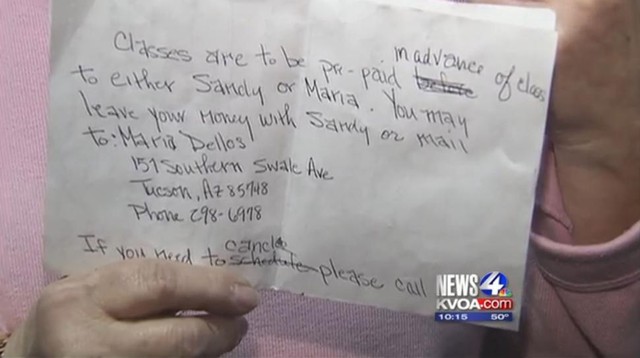 Classes are to be pre-paid before in advance of class
to either Sandy or Maria. You may
leave your money with Sandy or mail
to: Maria Dellos
157 Southern Swale Ave
Tucson, AZ 85748
Phone 298-6978
If you need to schedule cancle please call
NEWS 4
KVOA.com
10:15 50°